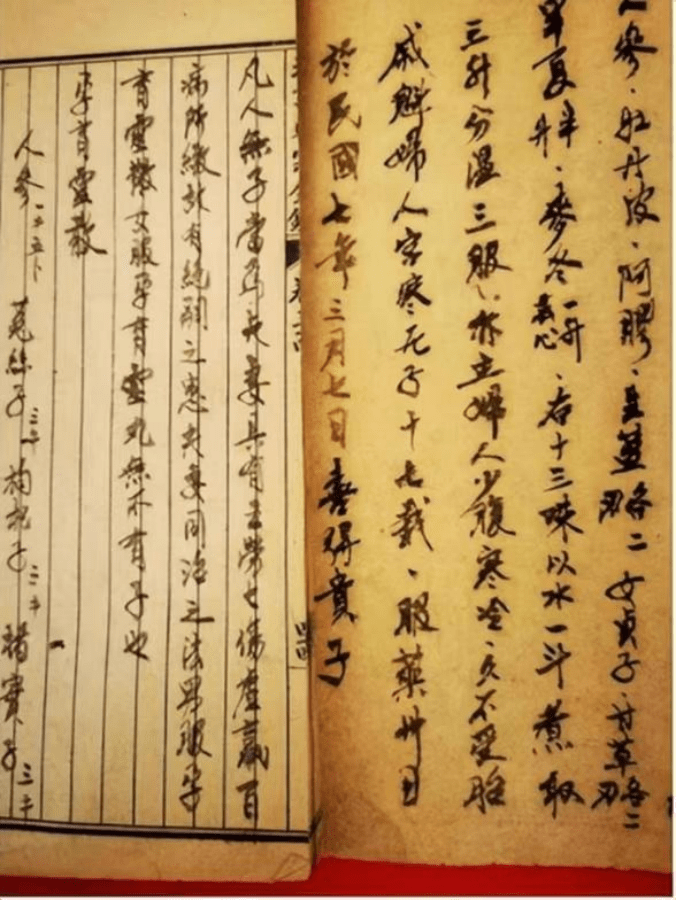 人參、牡丹皮、阿膠、生薑各二刄 女貞子、甘草各二刄
半夏半升、麥冬一升去心、右十三味以水一斗煮取
三升分溫三服、亦主婦人少腹寒冷、久不受胎
婦人宮寒无子十七載、服藥卅日
於民國七年三月七日喜得貴子
凡人無子當為夫妻具有五勞七傷虛羸百
病所緻於有絕嗣之患夫妻同治之法男服孕
育靈散女服孕育靈丸無不有子也
孕育靈散
人參 菟絲子 枸杞子 楮實子